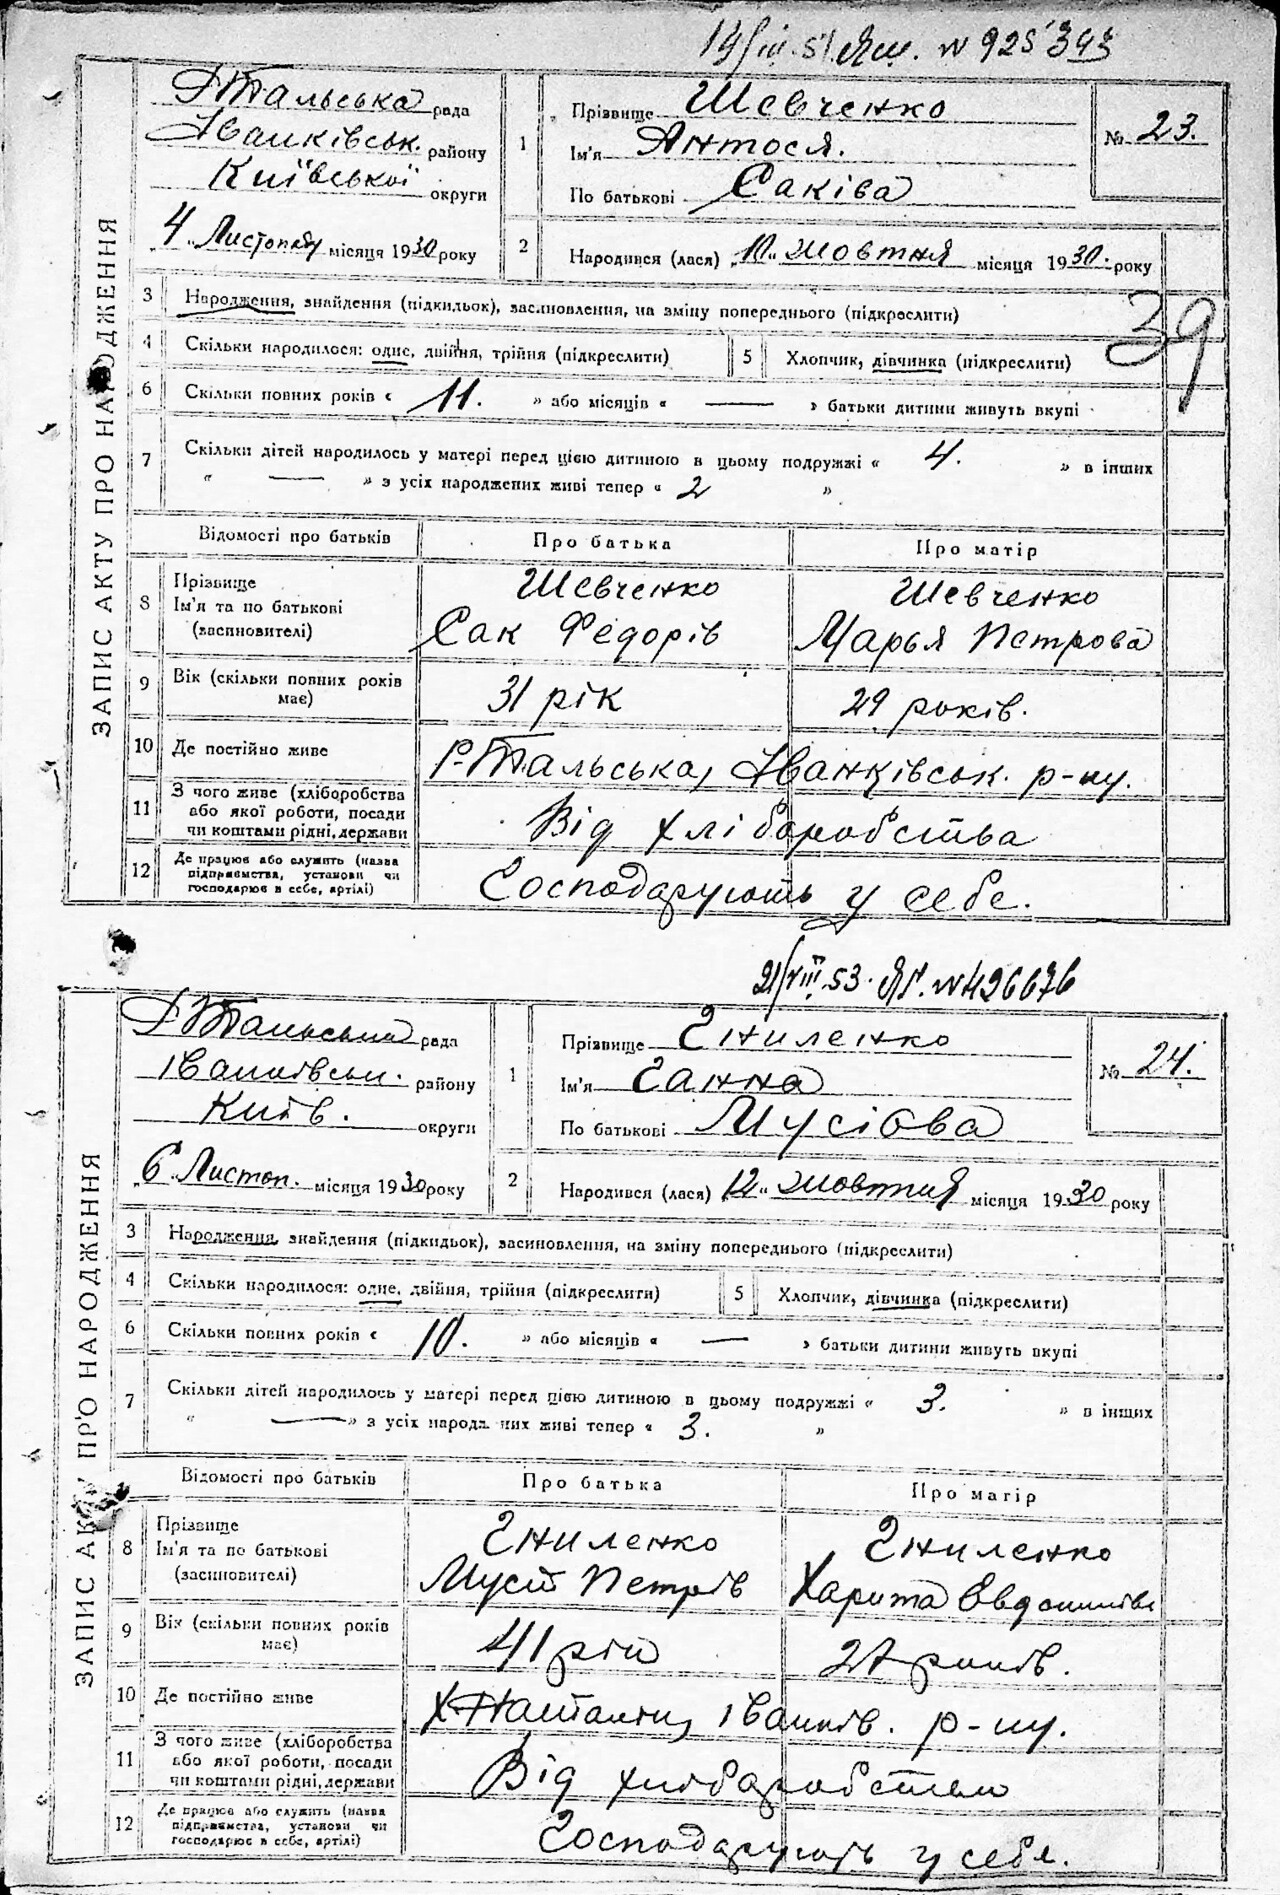 N 925343
ЗАПИС АКТУ ПРО НАРОДЖЕННЯ
Р-Тальська рада
Іванківськ. району
Київської округи
„4“ Листопаду місяця 1930 року
1
Прізвище Шевченко
Ім'я Антося.
По батькові Саківа
№ 23.
2
Народився (лася) „10“ жовтня місяця 1930. року
39
3 Народження, знайдення (підкидьок), засиновлення, на зміну попереднього (підкреслити)
4 Скільки народилося: одне, двійня, трійня (підкреслити) 5 Хлопчик, дівчинка (підкреслити)
6 Скільки повних років « 11. » або місяців « — » батьки дитини живуть вкупі
7 Скільки дітей народилось у матері перед цією дитиною в цьому подружжі « 4. » в інших
« — » з усіх народжених живі тепер « 2 »
Відомості про батьків Про батька Про матір
8 Прізвище
Ім'я та по батькові
(засиновителі)
Шевченко
Сак Федорів
Шевченко
Марья Петрова
9 Вік (скільки повних років має) 31 рік 29 років.
10 Де постійно живе Р-Тальська, Іванківськ. р-ну.
11 З чого живе (хліборобства
або якої роботи, посади
чи коштами рідні, держави
Від хліборобства
12 Де працює або служить (назва
підприємства, установи чи
господарює в себе, артілі)
Господарують у себе.
21/VIII 53. N 426676
ЗАПИС АКТУ ПРО НАРОДЖЕННЯ
рада
Іванківськ. району
Київ. округи
„6“ Листоп. місяця 1930 року
1
Прізвище Гниленко
Ім'я Ганна
По батькові Мусіова
№ 24.
2
Народився (лася) „12“ жовтня місяця 1930 року
3 Народження, знайдення (підкидьок), засиновлення, на зміну попереднього (підкреслити)
4 Скільки народилося: одне, двійня, трійня (підкреслити) 5 Хлопчик, дівчинка (підкреслити)
6 Скільки повних років « 10. » або місяців « — » батьки дитини живуть вкупі
7 Скільки дітей народилось у матері перед цією дитиною в цьому подружжі « 3. » в інших
« — » з усіх народж них живі тепер « 3. »
Відомості про батьків Про батька Про матір
8 Прізвище
Ім'я та по батькові
(засиновителі)
Гниленко
Мусій Петрів
Гниленко
Харита
9 Вік (скільки повних років має) 41 рік 27 років.
10 Де постійно живе Іванків. р-ну.
11 З чого живе (хліборобства
або якої роботи, посади
чи коштами рідні, держави
Від хліборобством
12 Де працює або служить (назва
підприємства, установи чи
господарює в себе, артілі)
Господарують у себе.